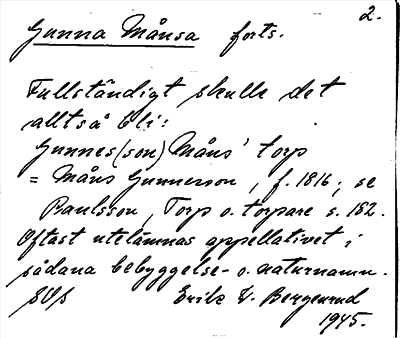 2.
Gunna Månsa forts.
Fullständigt skulle det
alltså bli:
Gunnes(son) Måns' torp
= Måns Gunnerson, f. 1816; se
Paulsson, Torp o. torpare s. 182.
Oftast utelämnas appellativet i
sådana bebyggelse- o. naturnamn.
Erik V. Bergenrud
1945.